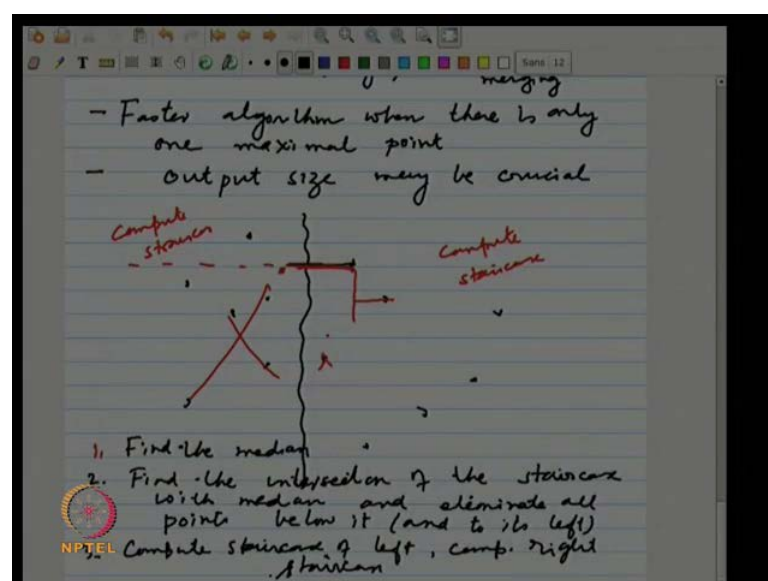 Sans 12
merging
- Faster algorithm when there is only
one maximal point
- output size may be crucial
Compute
Compute
staircase
1. Find the median
2. Find the intersection of the staircase
with median and eliminate all
points below it (and to its left)
3. Compute staircase of left, comp. right
staircase
NPTEL